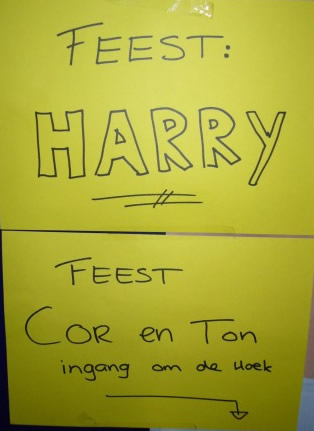 FEEST:
HARRY
FEEST
COR en TON
ingang om de Hoek